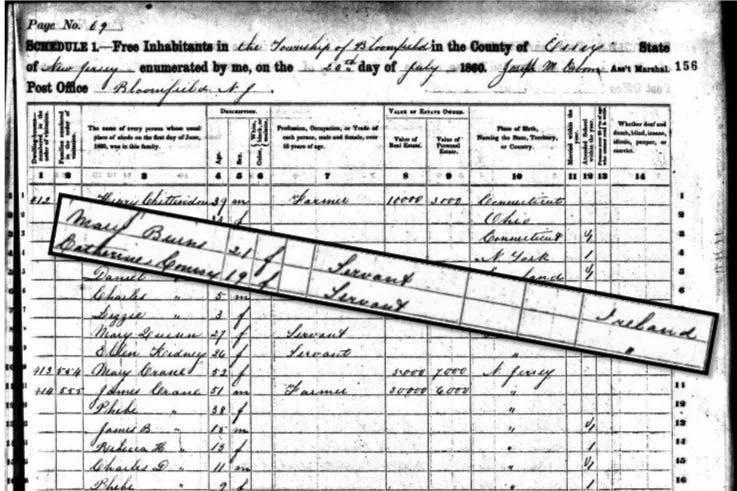 Page No. 69
SCHEDULE 1.—Free Inhabitants in the Township of Bloomfield in the County of Essex State
of New Jersey enumerated by me, on the 20th day of July 1860. Joseph M Ass't Marshal. 156
Post Office Bloomfield N.J.
DESCRIPTION. VALUE OF ESTATE OWNED.
The name of every person whose usual place of abode on the first day of June, 1860, was in this family.
Age. Sex.
Profession, Occupation, or Trade of each person, male and female, over 15 years of age.
Value of Real Estate. Value of Personal Estate.
Place of Birth, Naming the State, Territory, or Country.
Married within the year.
Whether deaf and dumb, blind, insane, idiotic, pauper, or convict.
1 2 3 4 5 6 7 8 9 10 11 12 13 14
412 Henry Chittenden 39 m Farmer 10000 3000 Connecticut 1
f Ohio
Connecticut 1/ 3
N York 1
Mary Burns 21 f Servant Ireland
Catherine 19 f Servant "
Daniel "
Charles " 5 m
Lizzie " 3 f
Mary Quinn 27 f Servant
Ellen Kidney 26 f Servant "
413 554 Mary Crane 52 f 5000 7000 N Jersey
414 555 James Crane 51 m Farmer 20000 6000 " 11
Phebe " 38 f " 12
James B " 15 m " 1/ 13
Rebecca H " 13 f " 1 14
Charles D " 11 m " 1/ 15
Phebe " 9 f " 1 16